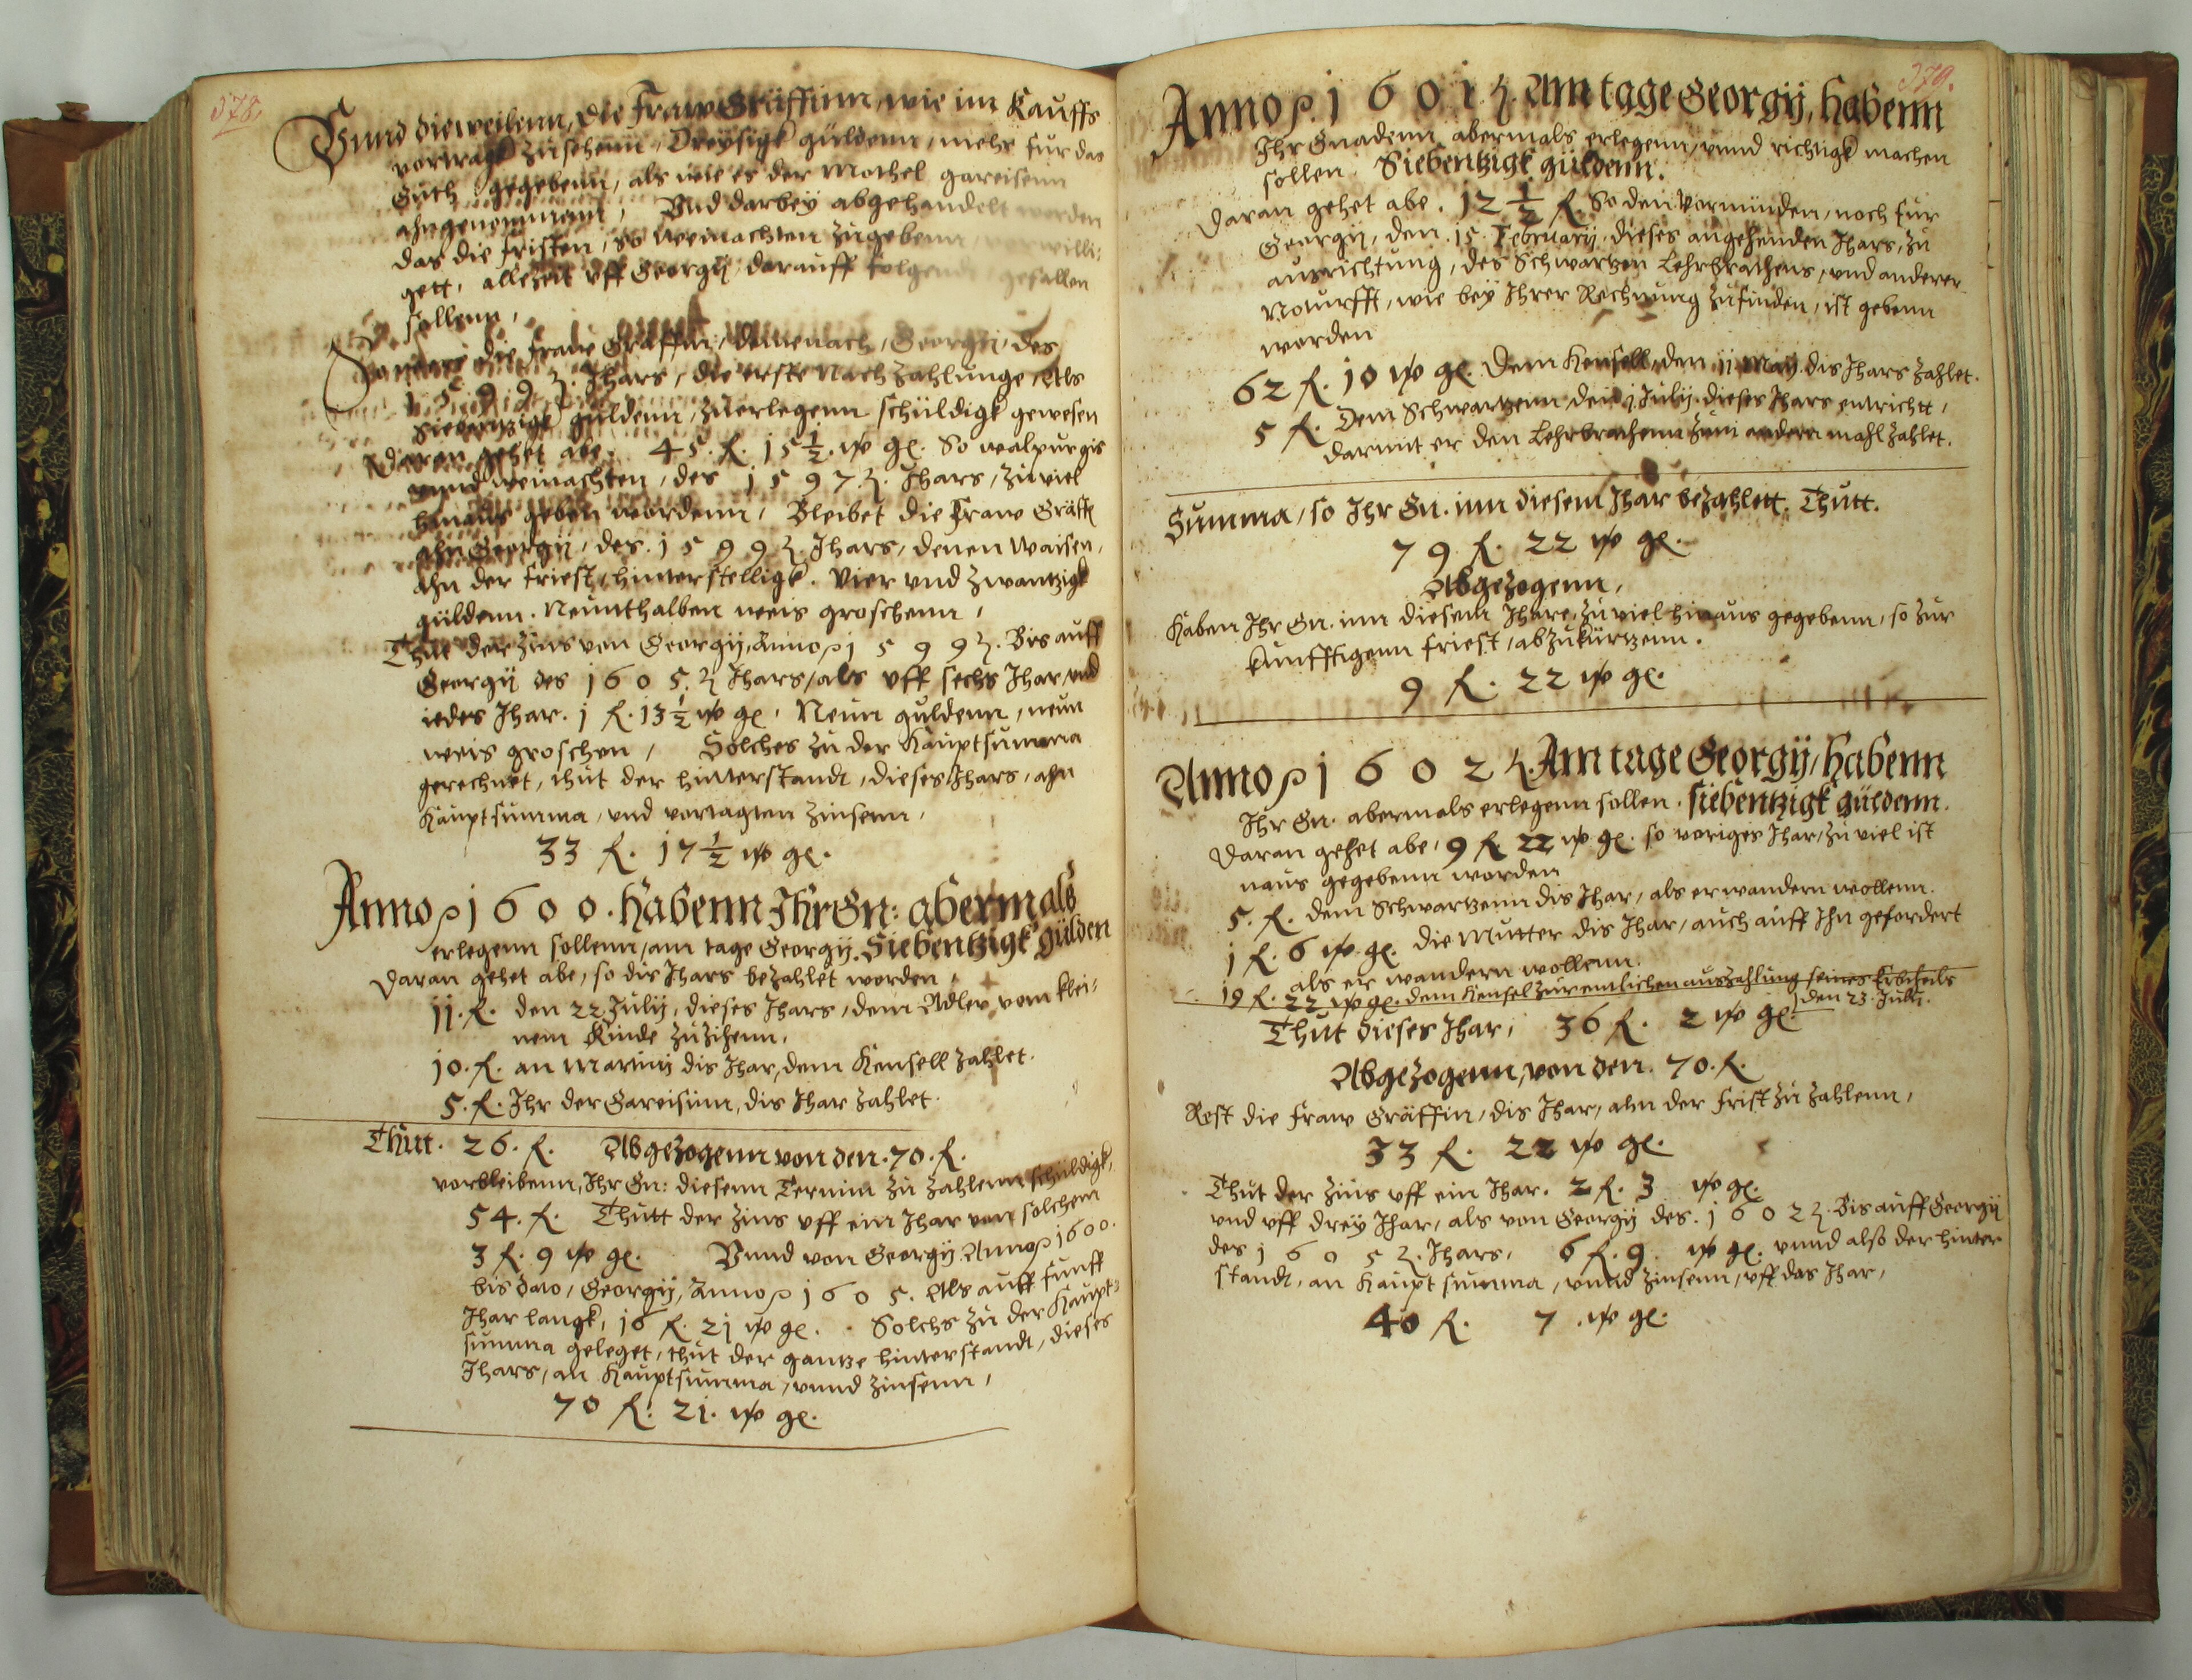 378.
Vnnd dieweilenn, die Fraw Gräffinn, wie im Kauffs
vertragk zusehenn, Dreysigk güldenn, mehr für das
Guth gegebenn, als wie es der Mothel gareisenn
ahngenommenn, Vnd darbey abgehandelt worden
das die fristen, so weinachten zugebenn willi-
gett, allezeit vff Georgij darauff folgend gefallen
sollenn,
die fraw Gräffin, demenach, Georgij, des
1599 Jhars, die erste Nachzahlunge, Als
Siebentzigk güldenn, zuerlegenn schüldigk gewesen
Daran gehet abe. 45. fl. 15 1/2. w gl. So walpurgis
vnnd weinachten, des 1597. Jhars, zuviel
hinaus geben wordenn, Bleibet die Fraw Gräffi
ahn Georgij, des. 1599. Jhars, denen Waisen,
ahn der friest, hinterstelligk. Vier vnd zwantzigk
güldenn. Neunthalben weis groschenn,
Thut der Zins von Georgij, Anno 1599. Bis auff
Georgij des 1605. Jhars, als vff sechs Jhar, vnd
iedes Jhar. 1 fl. 13 1/2 w gl, Neun güldenn, neun
weis groschen, Solches zu der Hauptsumma
gerechnet, thut der hinterstandt, dieses Jhars, ahn
Hauptsumma, vnd vertagten Zinsenn,
33 fl. 17 1/2 w gl.
Anno 1600. habenn Ihr Gn: abermals
erlegenn sollenn, am tage Georgij. Siebentzigk gülden
Daran gehet abe, so dis Jhars bezahlet worden,
11. fl. den 22 Julij, dieses Jhars, dem Adler vom klei-
nem Kinde zuzihenn,
10. fl. an Martinij dis Jhar, dem Hensell zahlet.
5. fl. Ihr der Gareisinn, dis Jhar zahlet.
Thut. 26. fl. Abgezogenn von den. 70. fl.
vorbleibenn, Ihr Gn: diesenn Termin zu zahlenn schüldigk,
54. fl. Thutt der Zins vff ein Jhar von solchem
3 fl. 9 w gl. Vnnd von Georgij. Anno 1600.
bis dato, Georgij, Anno 1605. Als auff funff
Jhar langk, 16 fl. 21 w gl. Solchs zu der Haupt-
summa geleget, thut der gantze hinterstandt, dieses
Jhars, an Hauptsumma, vnnd Zinsenn,
70 fl. 21. w gl.
379.
Anno 1601. Am tage Georgij, habenn
Ihr Gnadenn abermals erlegenn, vnnd richtigk machen
sollen. Siebentzigk güldenn.
Daran gehet abe. 12 1/2 fl. So den Vormünden, noch für
Georgij, den. 15 Februarij, dieses angehenden Jhars, zu
ausrichtung, des Schwartzen Lehrbrathens, vnd anderer
Noturfft, wie bey Ihrer Rechnung zufinden, ist gebenn
worden
62 fl. 10 w gl. Dem Hensell, den 11 May. dis Jhars zahlet.
5 fl. Dem Schwartzenn den 1. Julij. dieses Jhars entricht,
darmit er den Lehrbrathenn zum andern mahl zahlet.
Summa, so Ihr Gn. inn diesem Jhar bezahlett. Thutt.
79 fl. 22 w gl.
Abgezogenn,
Haben Ihr Gn. inn diesem Jhare, zu viel hinaus gegebenn, so zur
kunfftigenn friest, abzukürtzenn.
9 fl. 22 w gl.
Anno 1602. Am tage Georgij, habenn
Ihr Gn. abermals erlegenn sollen. siebentzigk güldenn.
Daran gehet abe, 9 fl. 22 w gl. so voriges Jhar, zu viel ist
naus gegebenn worden
5. fl. dem Schwartzenn dis Jhar, als er wandern wollenn.
1 fl. 6 w. gl. die Mutter dis Jhar, auch auff Ihn gefordert
als er wandern wollenn.
19 fl. 22 w gl. dem Hensel zur entlichen auszahlung seines Erbtheils
den 23. Julij.
Thut dieses Jhar, 36 fl. 2 w gl.
Abgezogenn, von den. 70. fl.
Rest die Fraw Gräffin, dis Jhar, ahn der frist zu zahlenn,
33 fl. 22 w gl.
Thut der Zins vff ein Jhar. 2 fl. 3 w gl.
vnd vff drey Jhar, als von Georgij des. 1602. Bis auff Georgij
des 1605. Jhars, 6 fl. 9. w gl. vnnd also der hinter
standt, an Haupt summa, vnnd Zinsenn, vff das Jhar,
40 fl. 7. w gl.